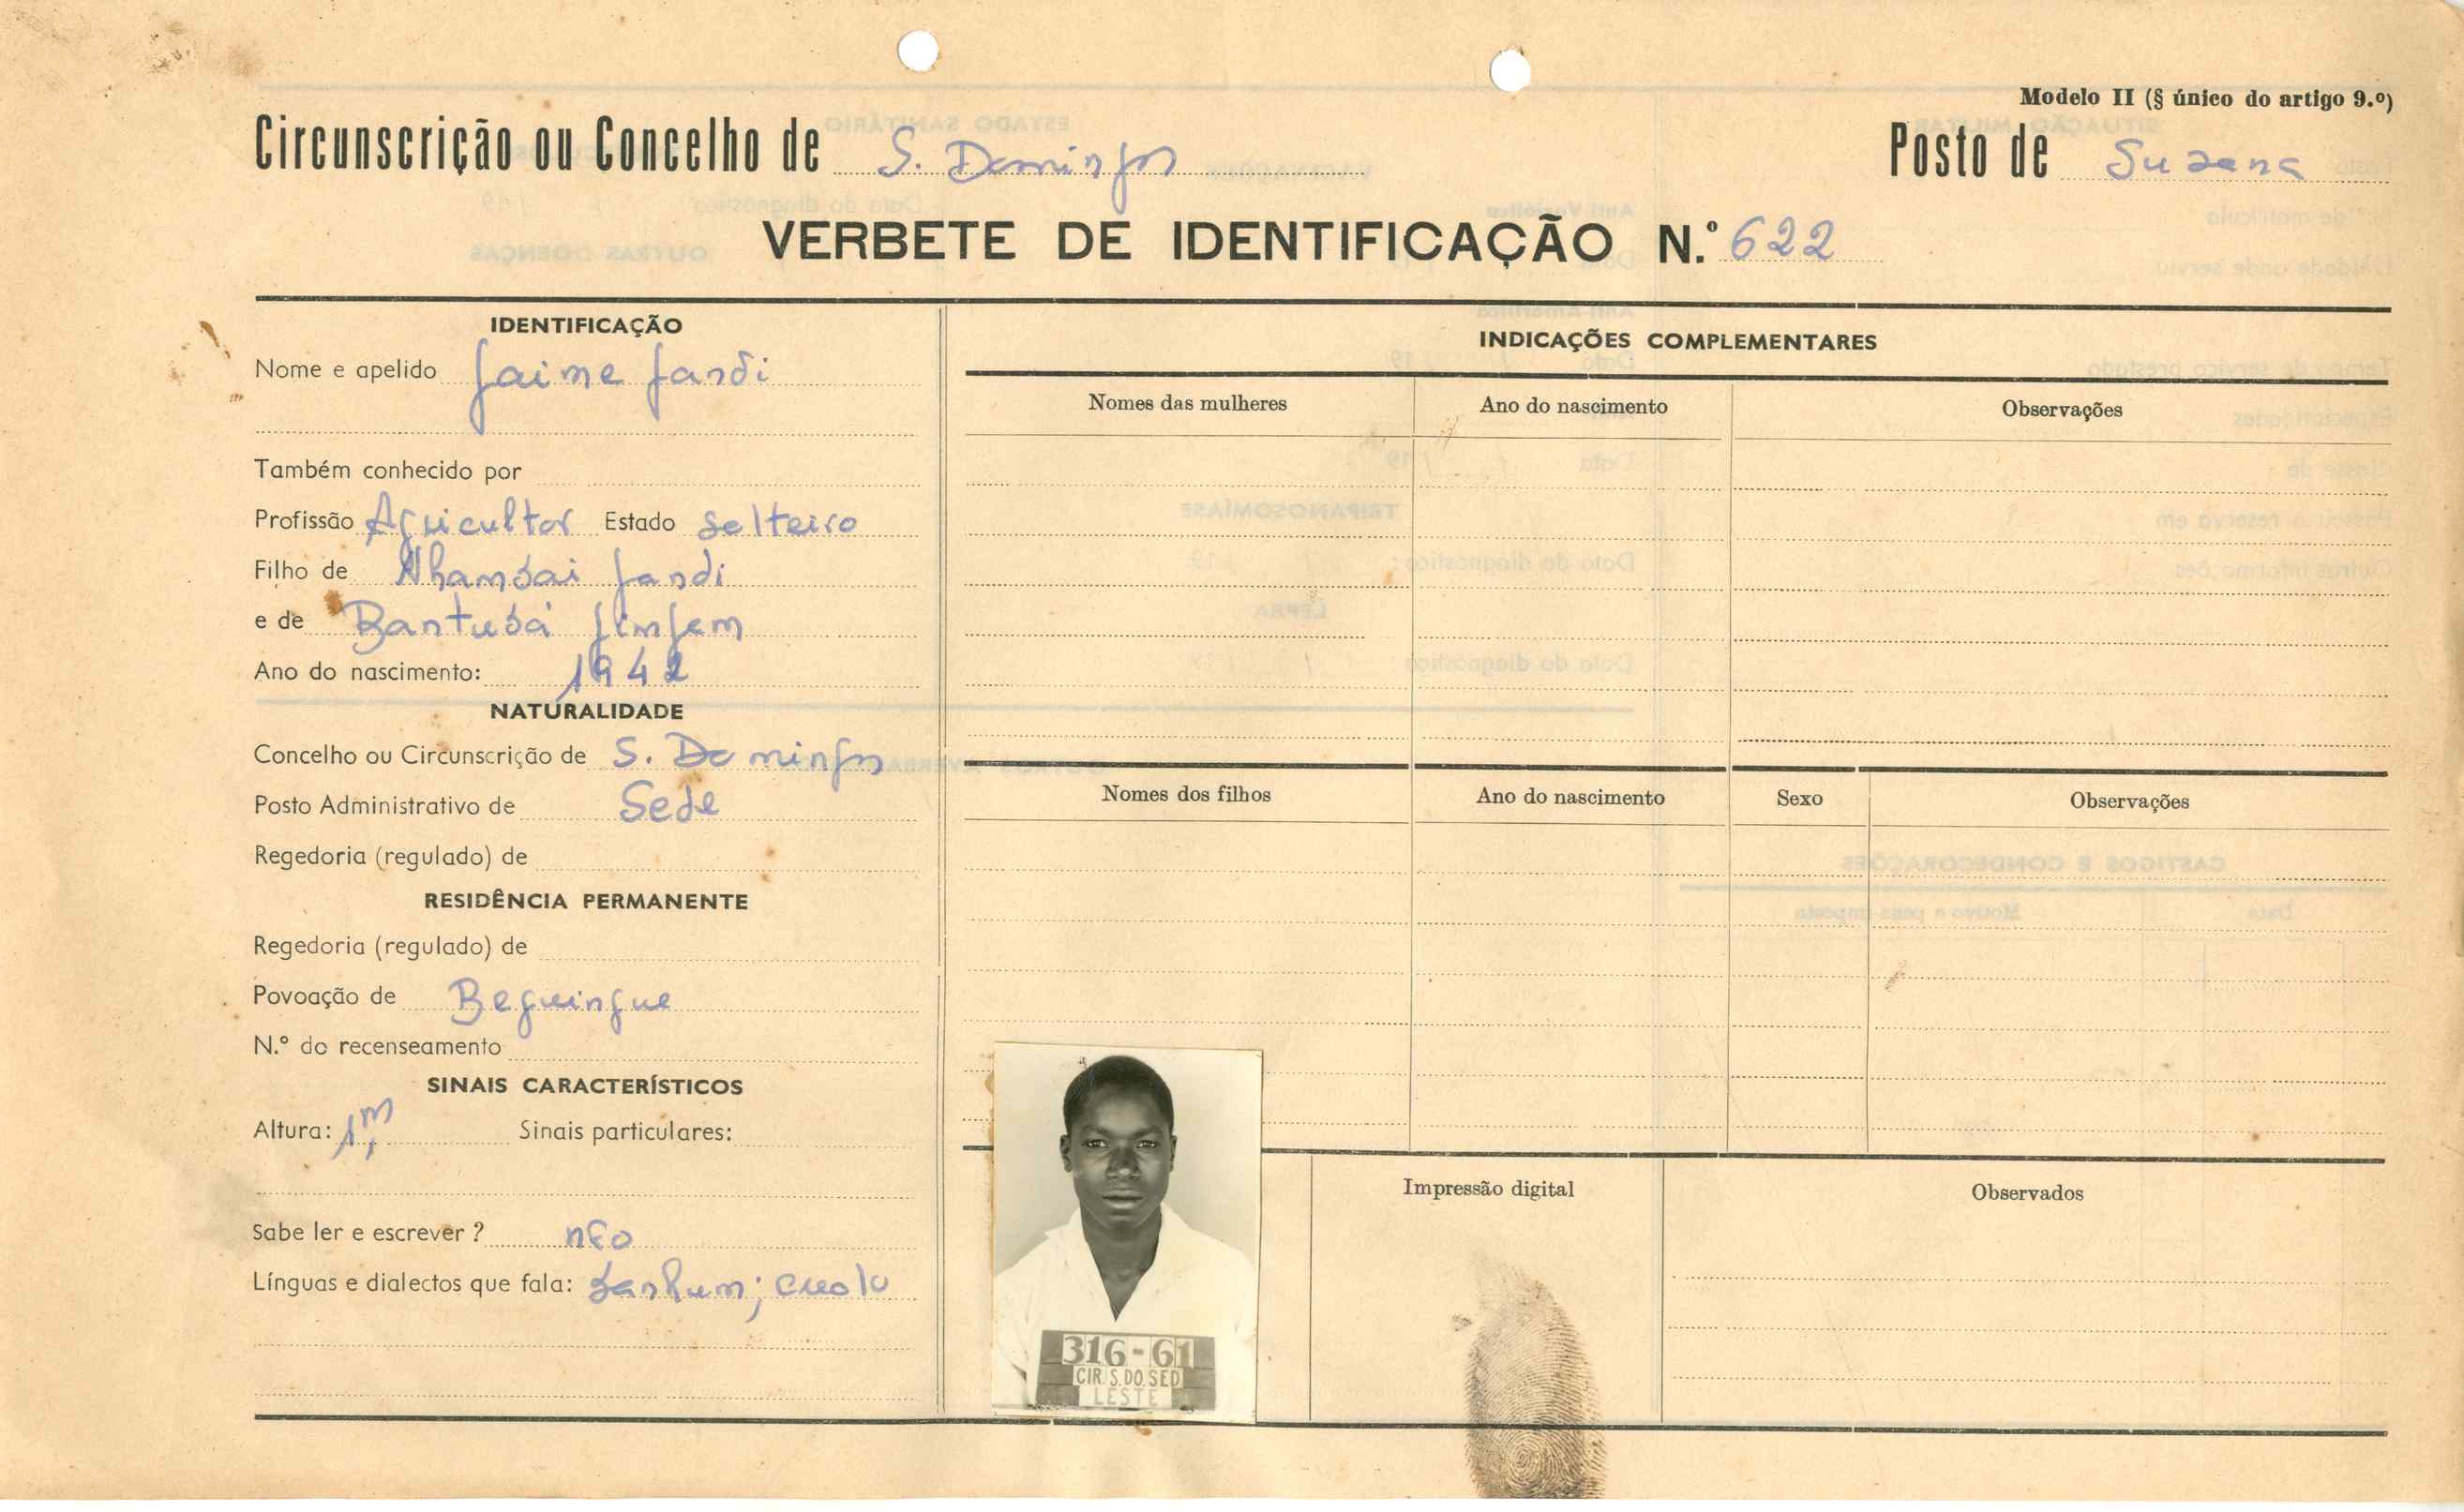 Modelo II (§ único do artigo 9.º)
Circunscrição ou Concelho de S. Domingos Posto de Suzana
VERBETE DE IDENTIFICAÇÃO N.º 622
IDENTIFICAÇÃO
Nome e apelido Jaime Jandi
Também conhecido por
Profissão Agricultor Estado Solteiro
Filho de Nhambai Jandi
e de Bantubá
Ano do nascimento: 1942
NATURALIDADE
Concelho ou Circunscrição de S. Domingos
Posto Administrativo de Sede
Regedoria (regulado) de
RESIDÊNCIA PERMANENTE
Regedoria (regulado) de
Povoação de Beguingue
N.º do recenseamento
SINAIS CARACTERÍSTICOS
Altura: 1,m Sinais particulares:
Sabe ler e escrever ? não
Línguas e dialectos que fala: banhum; crioulo
INDICAÇÕES COMPLEMENTARES
Nomes das mulheres Ano do nascimento Observações
Nomes dos filhos Ano do nascimento Sexo Observações
316-61
CIR. S. DO. SED.
LESTE
Impressão digital
Observados